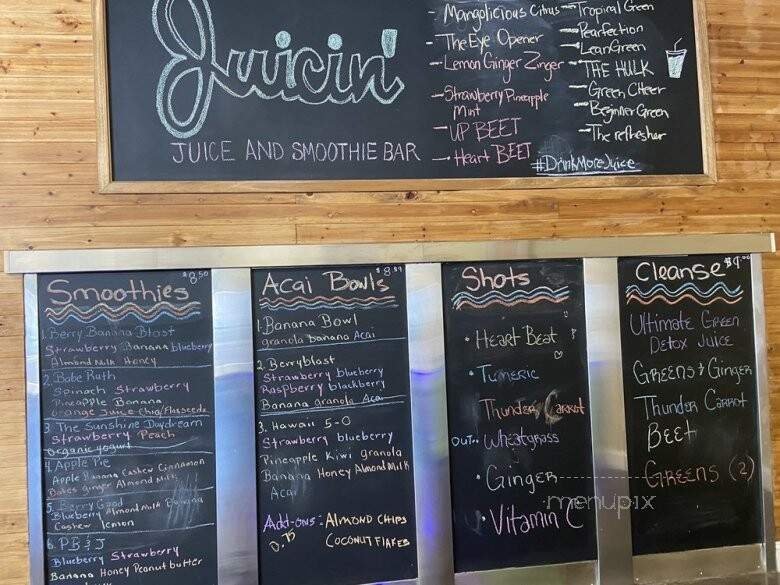 Juicin'
JUICE AND SMOOTHIE BAR
- Mangolicious Citrus
- The Eye Opener
- Lemon Ginger Zinger
- Strawberry Pineapple
Mint
- UP BEET
- Heart BEET
- Tropical Green
- Pearfection
- Lean Green
- THE HULK
- Green Cheer
- Beginner Green
- The refresher
#DrinkMoreJuice
Smoothies $8.50
1. Berry Banana Blast
Strawberry Banana blueberry
Almond Milk Honey
2. Babe Ruth
Spinach Strawberry
Pineapple Banana
Orange Juice Chia/Flaxseeds
3 The Sunshine Daydream
Strawberry Peach
Organic yogurt
4 Apple Pie
Apple Banana Cashew Cinnamon
Dates ginger Almond Milk
5. Berry Good
Blueberry Almond Milk Banana
Cashew lemon
6 PB & J
Blueberry Strawberry
Banana Honey Peanut butter
Acai Bowls
1. Banana Bowl
granola banana Acai
2. Berryblast
Strawberry blueberry
Raspberry blackberry
Banana granola Acai
3. Hawaii 5-0
Strawberry blueberry
Pineapple Kiwi granola
Banana Honey Almond Milk
Acai
Add-ons: ALMOND CHIPS
0.75 COCONUT FLAKES
Shots
• HEART BEAT
• TUMERIC
THUNDER CARROT
OUT • WHEATGRASS
• GINGER
• VITAMIN C
Cleanse
ULTIMATE GREEN
DETOX JUICE
GREENS & GINGER
THUNDER CARROT
BEET
GREENS (2)
menupix